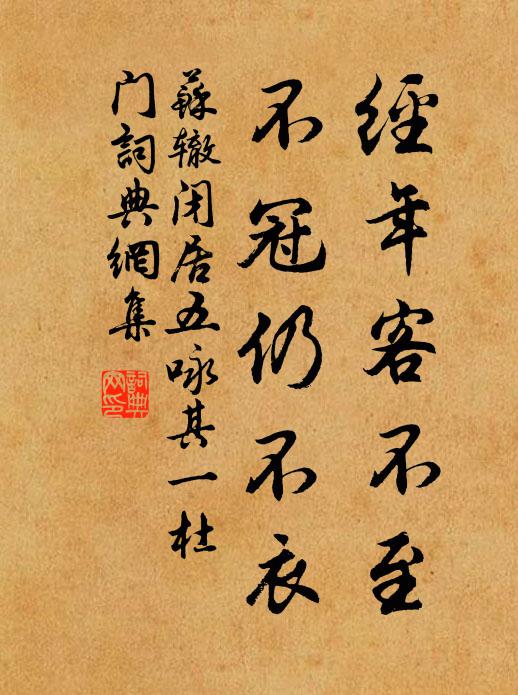 經年客不至
不冠仍不衣
蘇辙闭居五咏其一杜
门詞典網集
詞典
网印